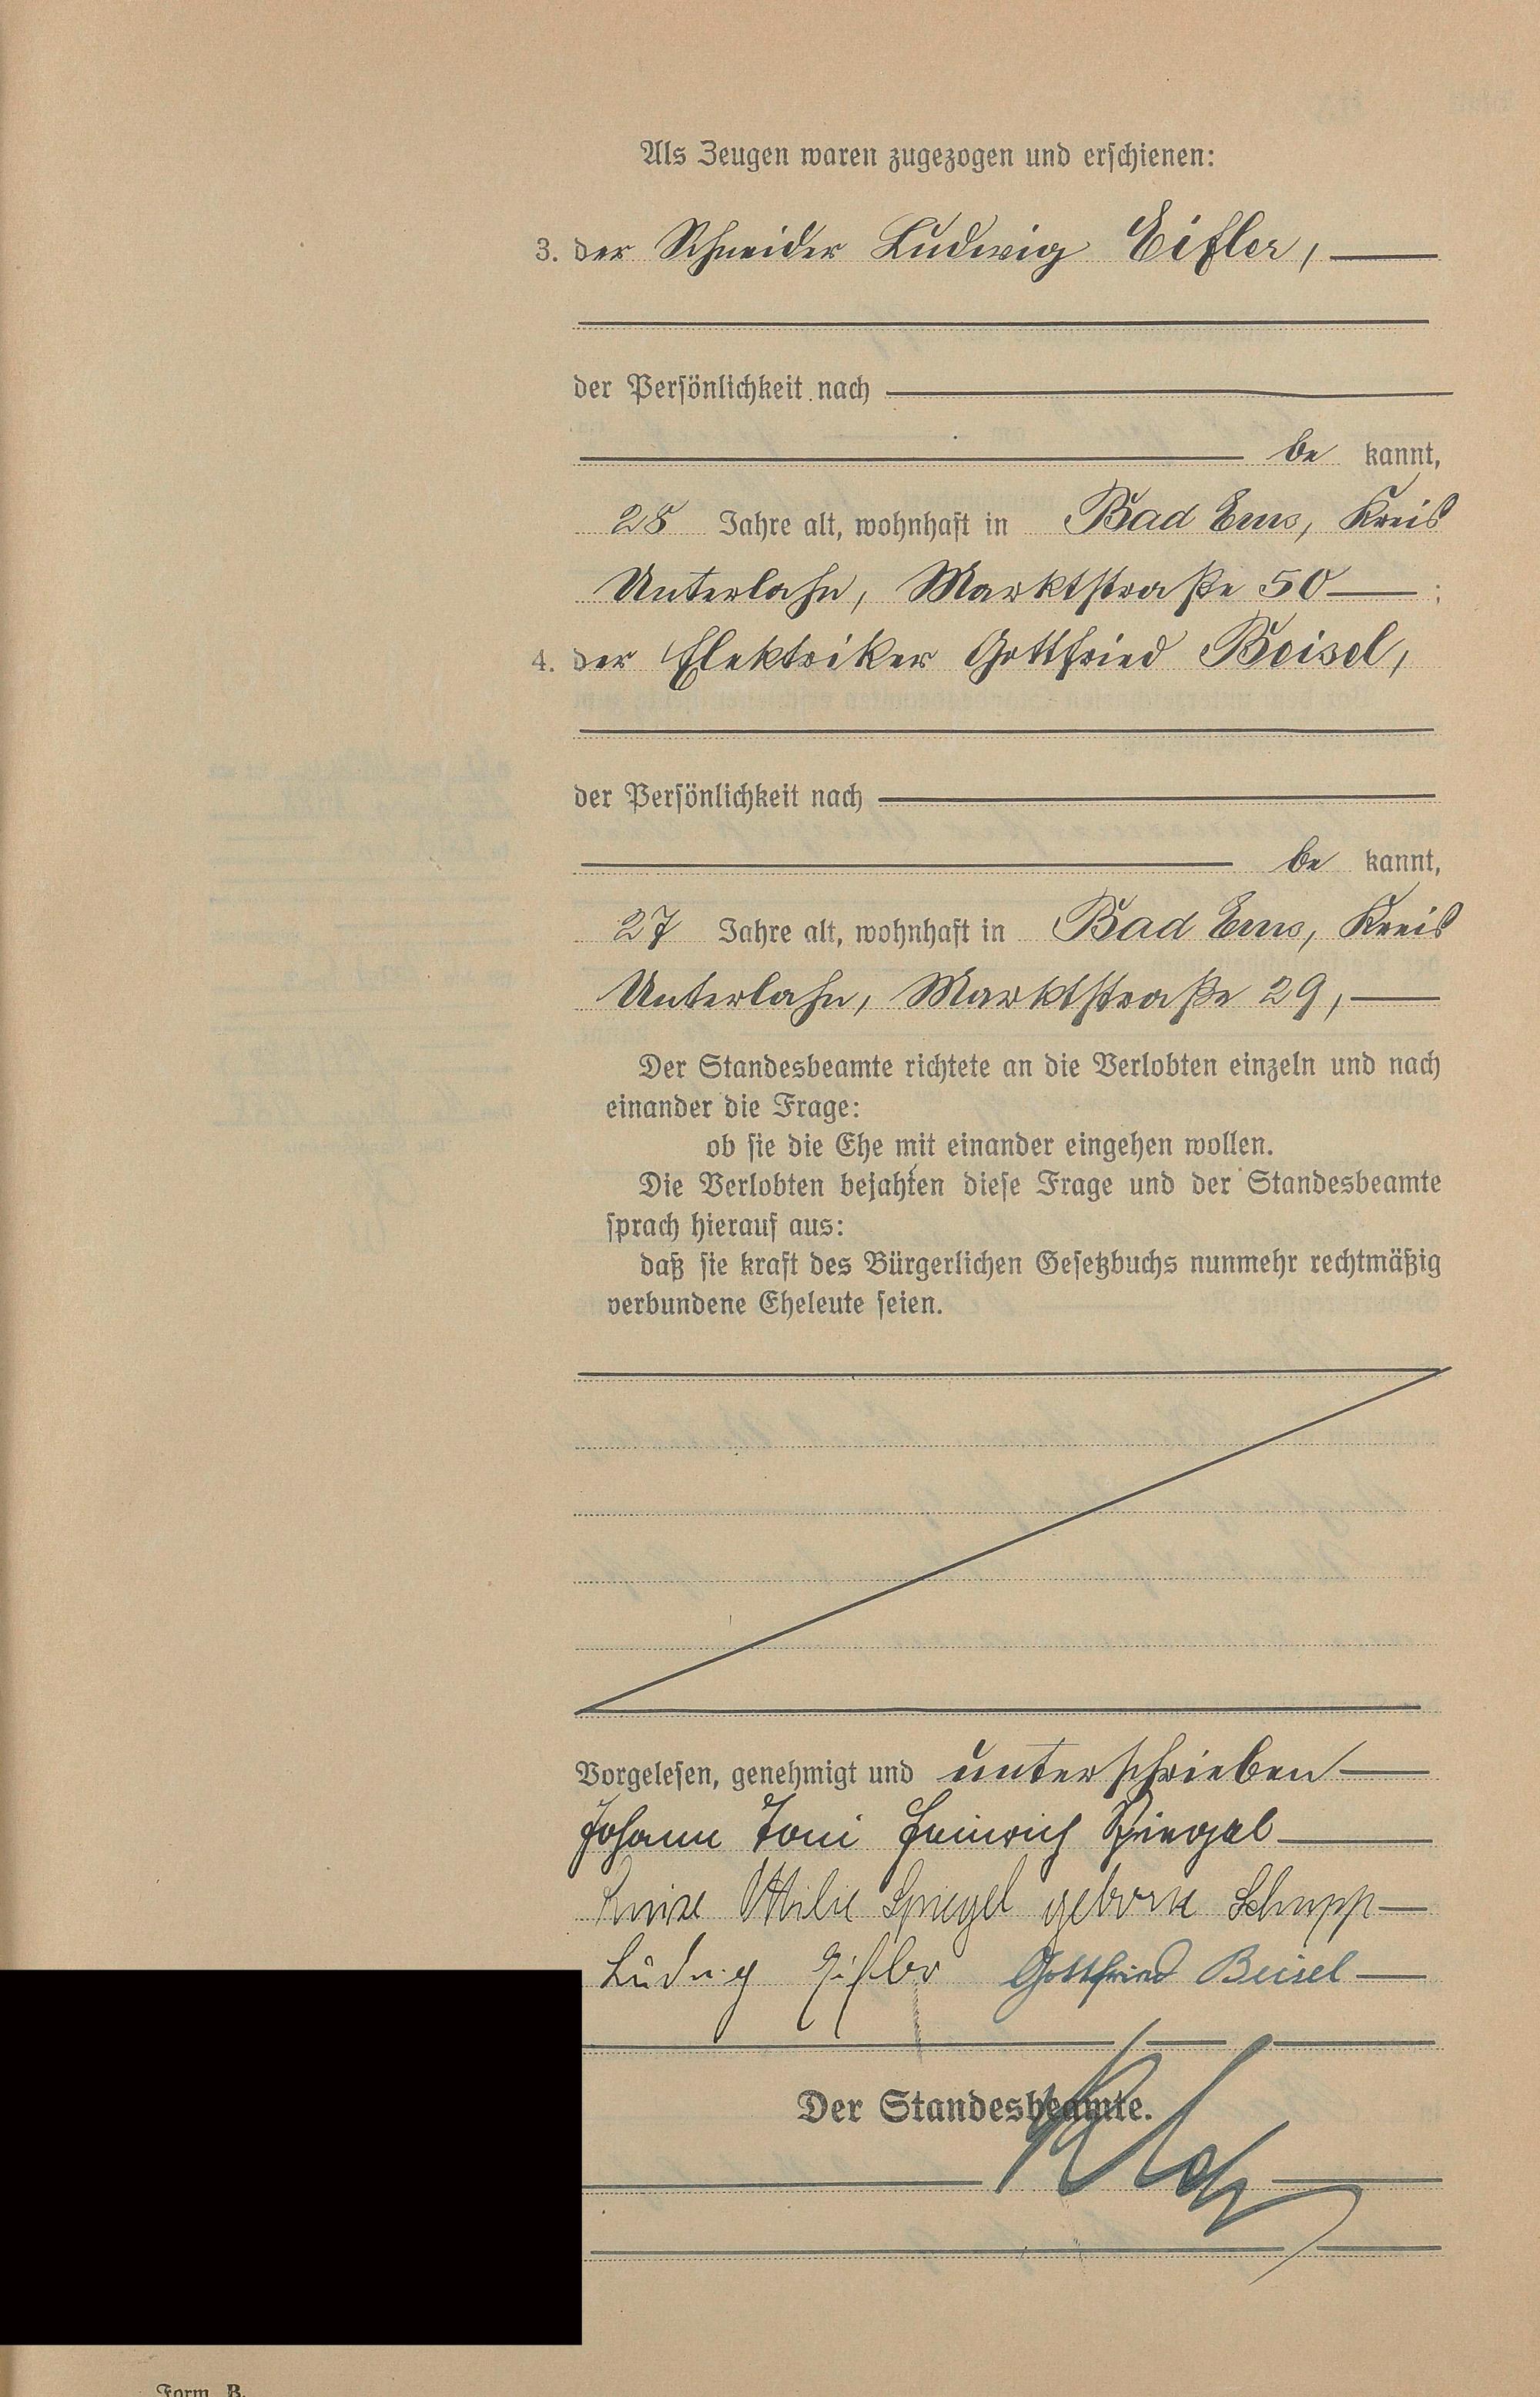 Als Zeugen waren zugezogen und erschienen:
3. der Schneider Ludwig Eifler,
der Persönlichkeit nach
be kannt,
28 Jahre alt, wohnhaft in Bad Ems, Kreis
Unterlahn, Marktstraße 50 ;
4. der Elektriker Gottfried Beisel,
der Persönlichkeit nach
be kannt,
27 Jahre alt, wohnhaft in Bad Ems, Kreis
Unterlahn, Marktstraße 29,
Der Standesbeamte richtete an die Verlobten einzeln und nach
einander die Frage:
ob sie die Ehe mit einander eingehen wollen.
Die Verlobten bejahten diese Frage und der Standesbeamte
sprach hierauf aus:
daß sie kraft des Bürgerlichen Gesetzbuchs nunmehr rechtmäßig
verbundene Eheleute seien.
Vorgelesen, genehmigt und unterschrieben
Johann Toni Heinrich Spiegel
Luise Ottilie Spiegel geborne Schupp
Ludwig Eifler Gottfried Beisel
Der Standesbeamte.
Form. B.